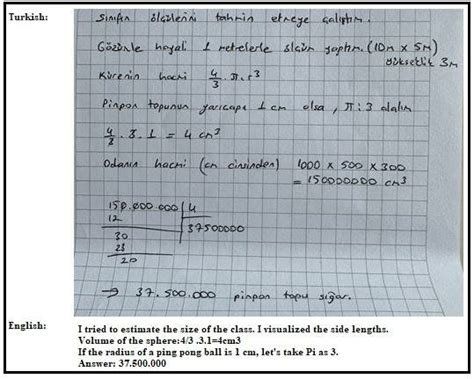 Turkish:
Sınıfın ölçülerini tahmin etmeye çalıştım.
Gözümle hayali 1 metrelerle ölçüm yaptım. (10m x 5m)
yükseklik 3m
Kürenin hacmi 4/3 . π . r³
Pinpon topunun yarıçapı 1 cm olsa, π : 3 alalım
4/3 . 3 . 1 = 4 cm³
Odanın hacmi (cm cinsinden) 1000 x 500 x 300
= 150000000 cm³
150.000.000 | 4
12 37500000
30
28
20
→ 37.500.000 pinpon topu sığar.
English:
I tried to estimate the size of the class. I visualized the side lengths.
Volume of the sphere:4/3 .3.1=4cm3
If the radius of a ping pong ball is 1 cm, let's take Pi as 3.
Answer: 37.500.000